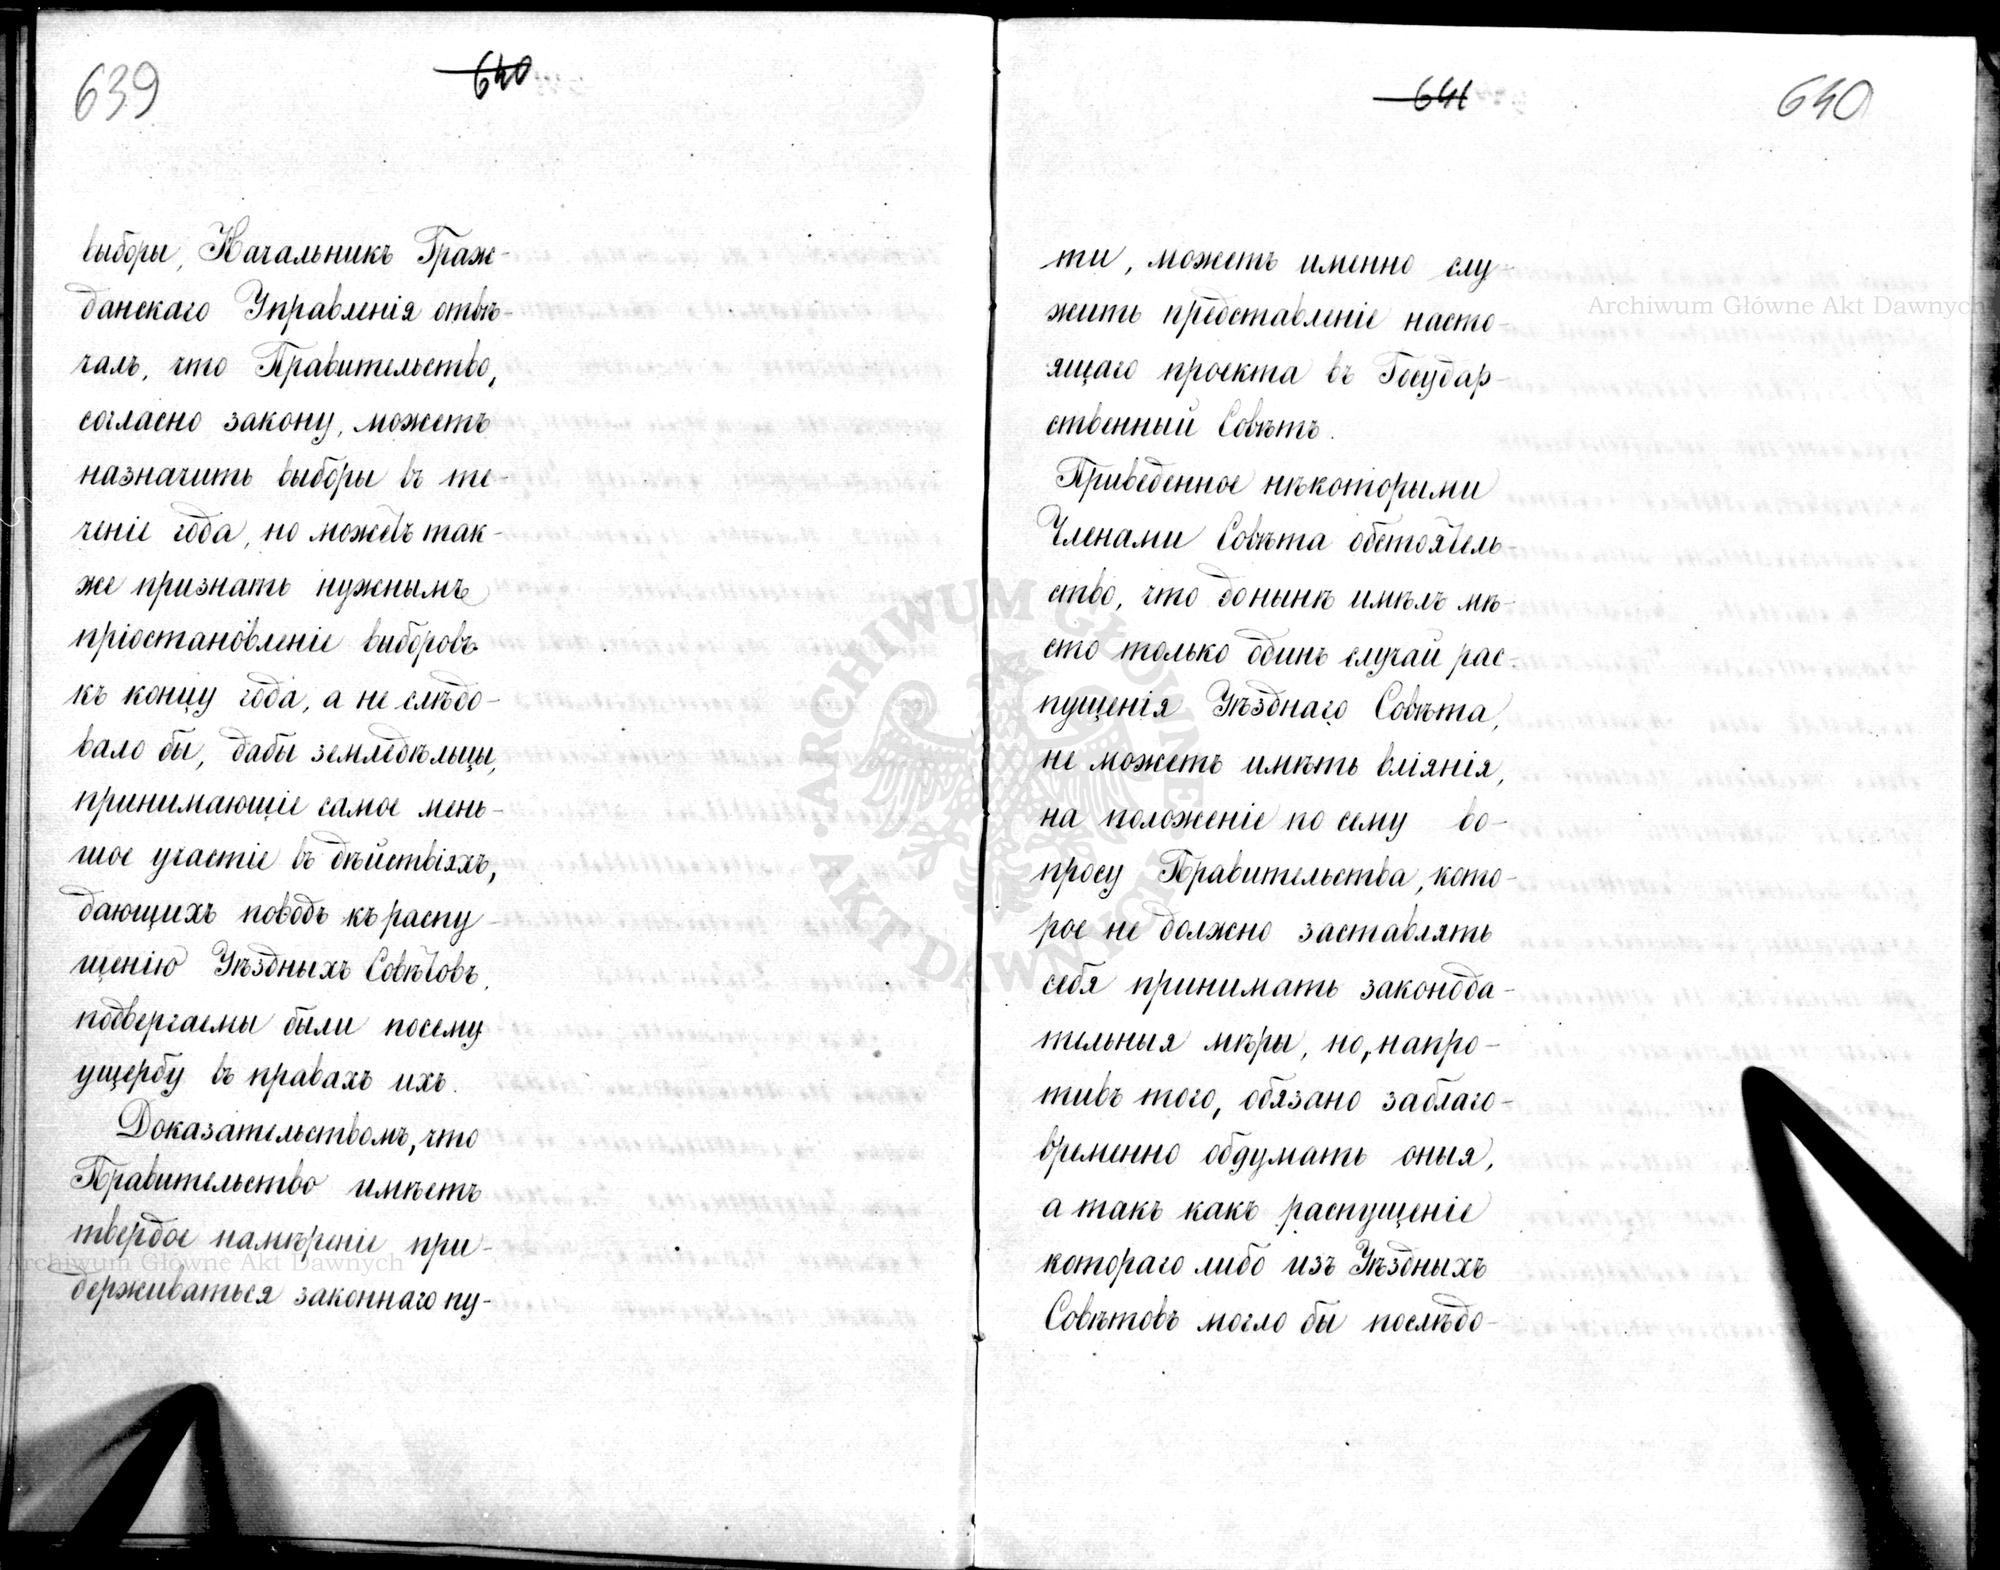 639
640
выборы, Начальникъ Граж-
данскаго Управленія отвѣ-
чалъ, что Правительство,
согласно закону, можетъ
назначить выборы въ те-
ченіе года, но можетъ так-
же признать нужнымъ
пріостановленіе выборовъ
къ концу года, а не слѣдо-
вало бы, дабы земледѣльцы,
принимающіе самое мень-
шое участіе въ дѣйствіяхъ,
дающихъ поводъ къ распу-
щенію Уѣздныхъ Совѣтовъ,
подвергаемы были посему
ущербу въ правахъ ихъ.
Доказательствомъ, что
Правительство имѣетъ
твердое намѣреніе при-
держиваться законнаго пу-
641
640
ти, можетъ именно слу-
жить представленіе насто-
ящаго проекта въ Государ-
ственный Совѣтъ.
Приведенное нѣкоторыми
Членами Совѣта обстоятель-
ство, что донынѣ имѣлъ мѣ-
сто только одинъ случай рас-
пущенія Уѣзднаго Совѣта,
не можетъ имѣть вліянія,
на положеніе по сему во-
просу Правительства, кото-
рое не должно заставлять
себя принимать законода-
тельныя мѣры, но, напро-
тивъ того, обязано заблаго-
временно обдумать оныя,
а такъ какъ распущеніе
котораго либо изъ Уѣздныхъ
Совѣтовъ могло бы послѣдо-
Archiwum Główne Akt Dawnych
Archiwum Główne Akt Dawnych
ARCHIWUM GŁÓWNE
AKT DAWNYCH